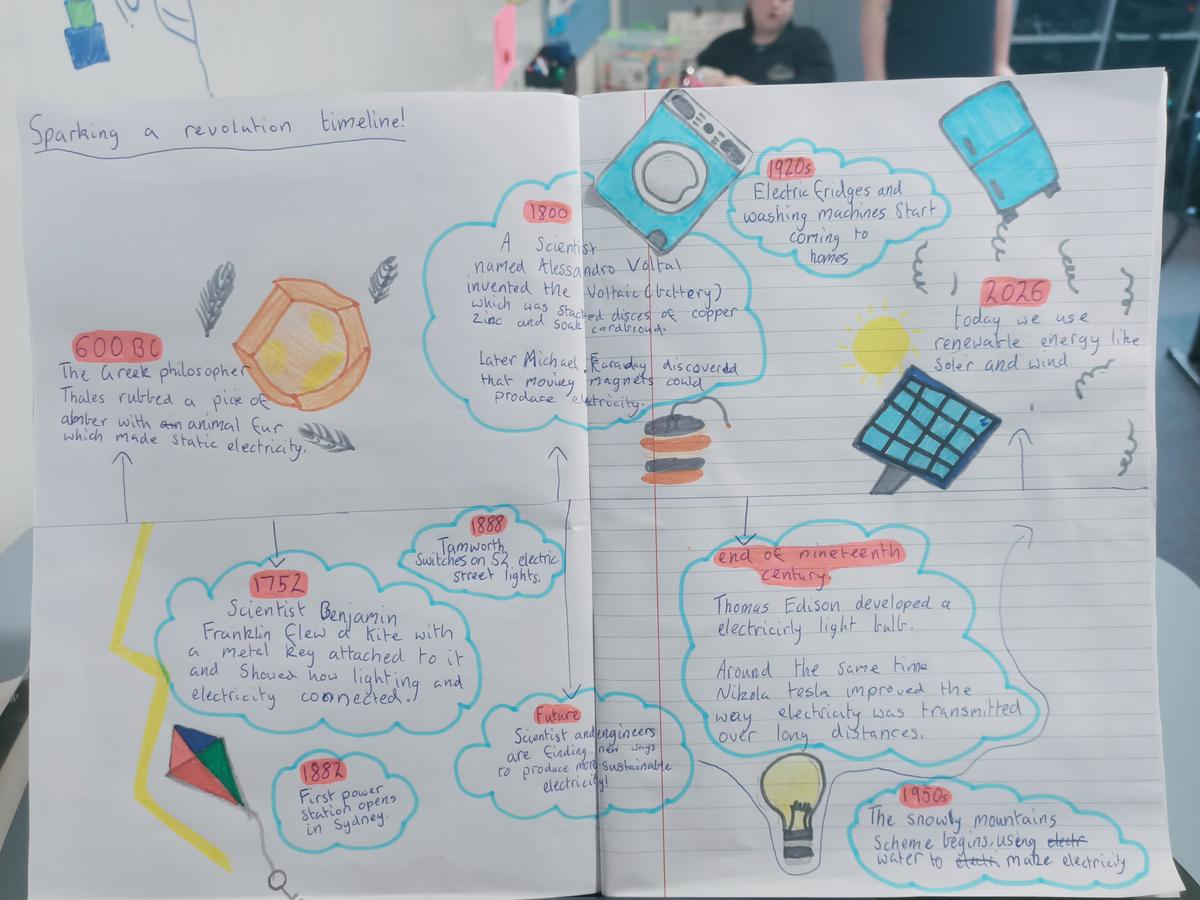 Sparking a revolution timeline!
600 BC
The Greek philosopher
Thales rubbed a pice of
abmber with an animal fur
which made static electricity.
1800
A Scientist
named Alessandro Voltal
invented the Voltaic (battery)
which was stacked disces of copper
zinc and soak cardbroud.
Later Michael Faraday discovered
that moving magnets could
produce eletricity.
1920s
Electric fridges and
washing machines Start
coming to
homes
2026
today we use
renewable energy like
soler and wind.
1752
Scientist Benjamin
Franklin flew a kite with
a metal key attached to it
and Showed how lighting and
electricity connected.
1882
First power
station opens
in Sydney.
1888
Tamworth
Switches on 52 electric
street lights.
Future
Scientist and engineers
are finding new ways
to produce more sustainable
electricity!
end of nineteenth
century
Thomas Edison developed a
electricirly light bulb.
Around the same time
Nikola tesla improved the
way electricity was transmitted
over long distances.
1950s
The snowly mountains
Scheme begins, using electr
water to electri make electricity